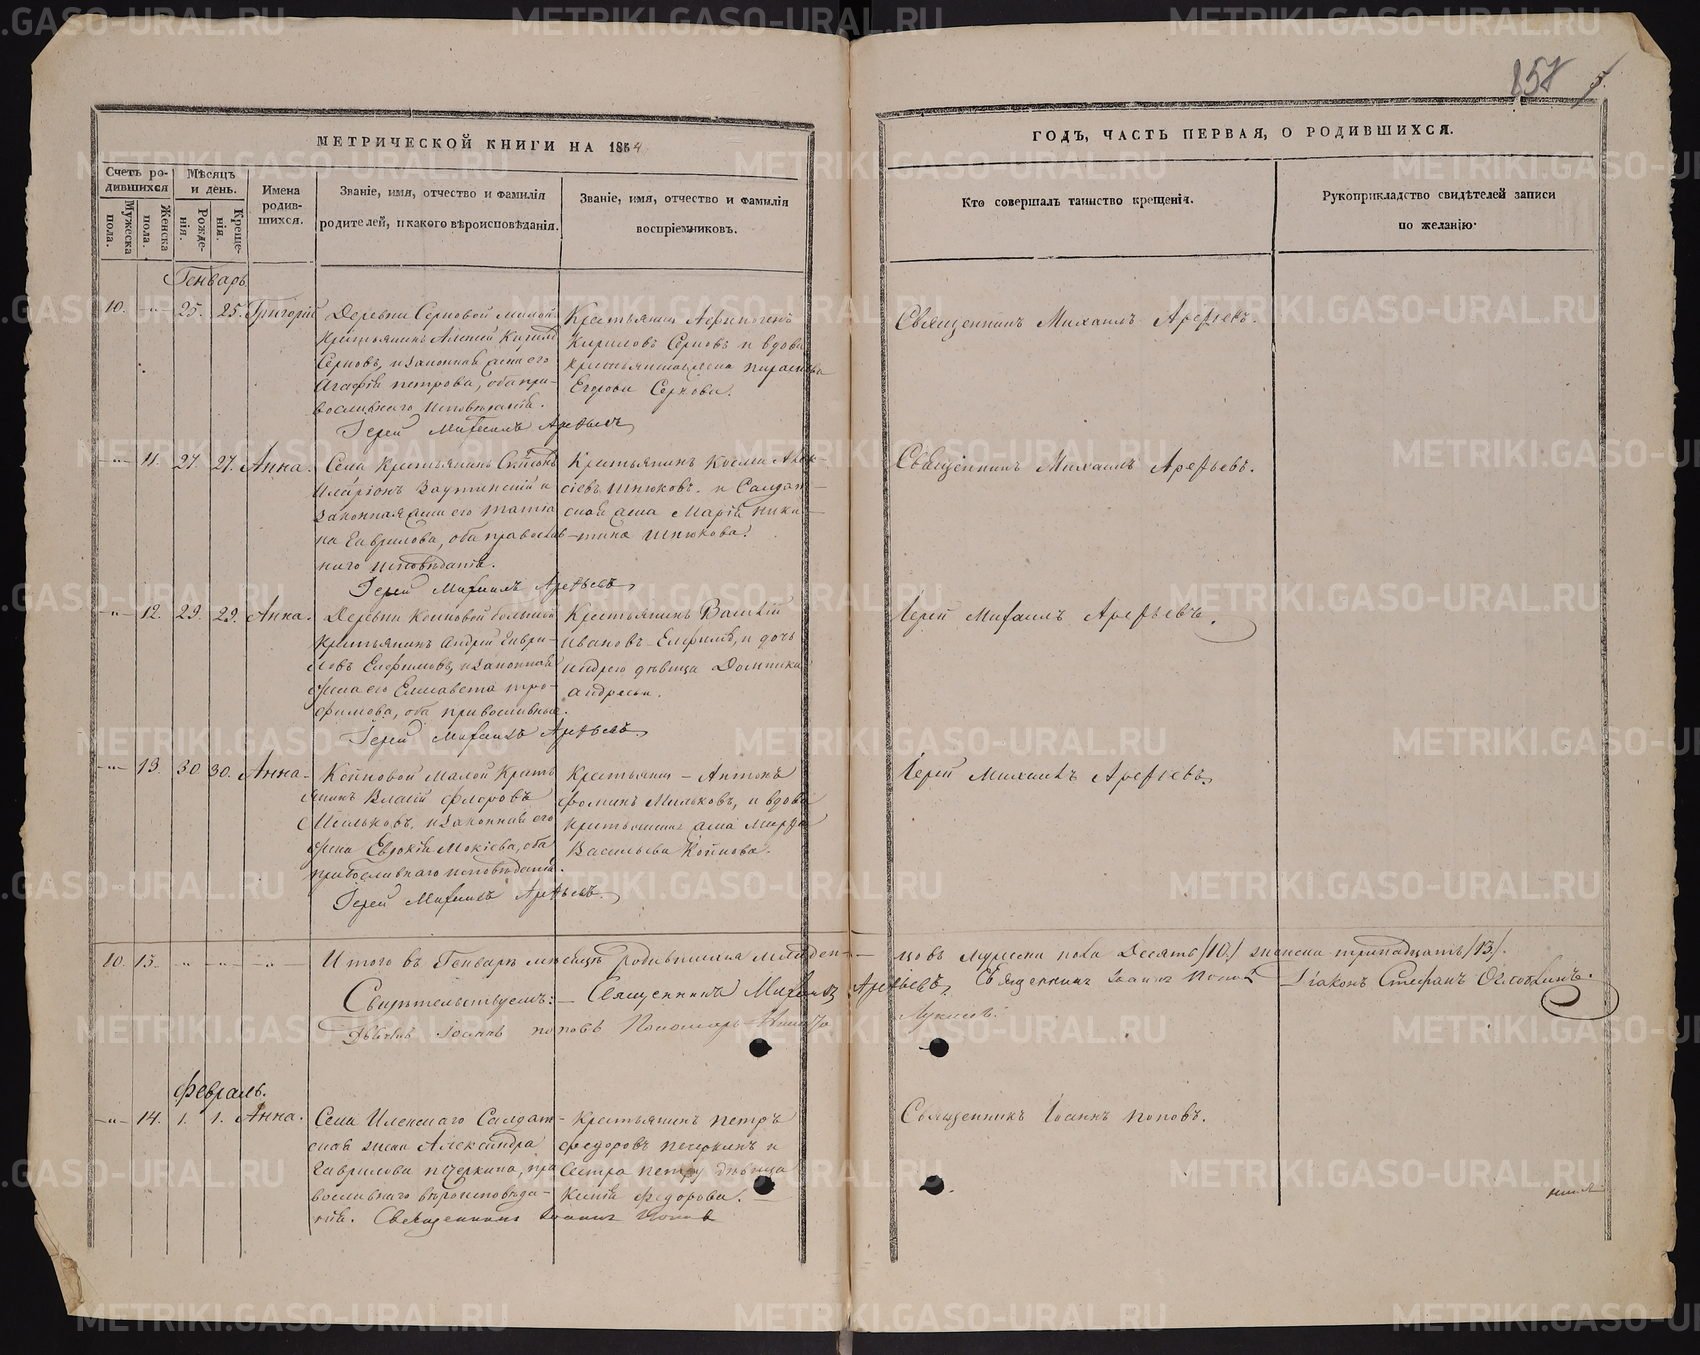 857
МЕТРИЧЕСКОЙ КНИГИ НА 1854
ГОДЪ, ЧАСТЬ ПЕРВАЯ, О РОДИВШИХСЯ.
Счетъ родившихся
Мужеска пола.
Женска пола.
Мѣсяцъ и день.
Рожденія.
Крещенія.
Имена родившихся.
Званіе, имя, отчество и фамилія
родителей, и какого вѣроисповѣданія.
Званіе, имя, отчество и фамилія
воспріемниковъ.
Кто совершалъ таинство крещенія.
Рукоприкладство свидѣтелей записи
по желанію.
Генварь
10. 25. 25. Григорій
Деревни Серковой малой
Крестьянинъ Алексѣй Кирил
Серковъ, и законная жена его
Агафія петрова, оба пра-
вославнаго исповѣданія.
Іерей Михаилъ Арефьевъ
Крестьянинъ
Кириловъ Серковъ и вдова
крестьянская жена параскева
Егорова Серкова.
Священникъ Михаилъ Арефьевъ.
11. 27. 27. Анна.
Села Крестьянинъ
Иларіонъ и
законная жена его Татіа
на Гаврилова, оба православ
наго исповѣданія.
Іерей Михаилъ Арефьевъ
Крестьянинъ Косма Алек-
сѣевъ Шнюковъ. и Салдат-
ская жена Марія Ники-
тина Шнюкова.
Священникъ Михаилъ Арефьевъ.
12. 29. 29. Анна.
Деревни Коиновой большой
Крестьянинъ Андрей Гаври-
ловъ Елфимовъ, и законная
жена его Елисавета тро-
фимова, оба православные.
Іерей Михаилъ Арефьевъ
Крестьянинъ Василій
Ивановъ Елфимовъ, и дочь
Андрея дѣвица Домника
андреева.
Іерей Михаилъ Арефьевъ.
13. 30 30. Анна
Койновой Малой Кресть
янинъ Власій флоровъ
Мильковъ, и законная его
жена Евдокія Мокіева, оба
православнаго исповѣданія.
Іерей Михаилъ Арефьевъ.
Крестьянин Антонъ
фоминъ Мильковъ, и вдова
крестьянская жена Марфа
Васильева Койнова.
Іерей Михаилъ Арефьевъ
10. 13.
Итого въ Генварѣ мѣсяцѣ родившихся младен-
цовъ мужеска пола Десять /10/ женска тринадцать /13/.
Свидѣтельствуемъ: Священникъ Михаилъ Арефьевъ, Священникъ Іоаннъ Поповъ Діаконъ Стефанъ
Дьячекъ Іоаннъ поповъ Пономарь
Февраль.
14. 1. 1. Анна.
Села Иленскаго Салдат-
ская жена Александра
Гаврилова печеркина, пра
вославнаго вѣроисповѣда-
нія. Священникъ Іоаннъ Поповъ
Крестьянинъ петръ
федоровъ печеркинъ и
Сестра петру дѣвица
Ксенія Федорова.
Священникъ Іоаннъ поповъ.
METRIKI.GASO-URAL.RU